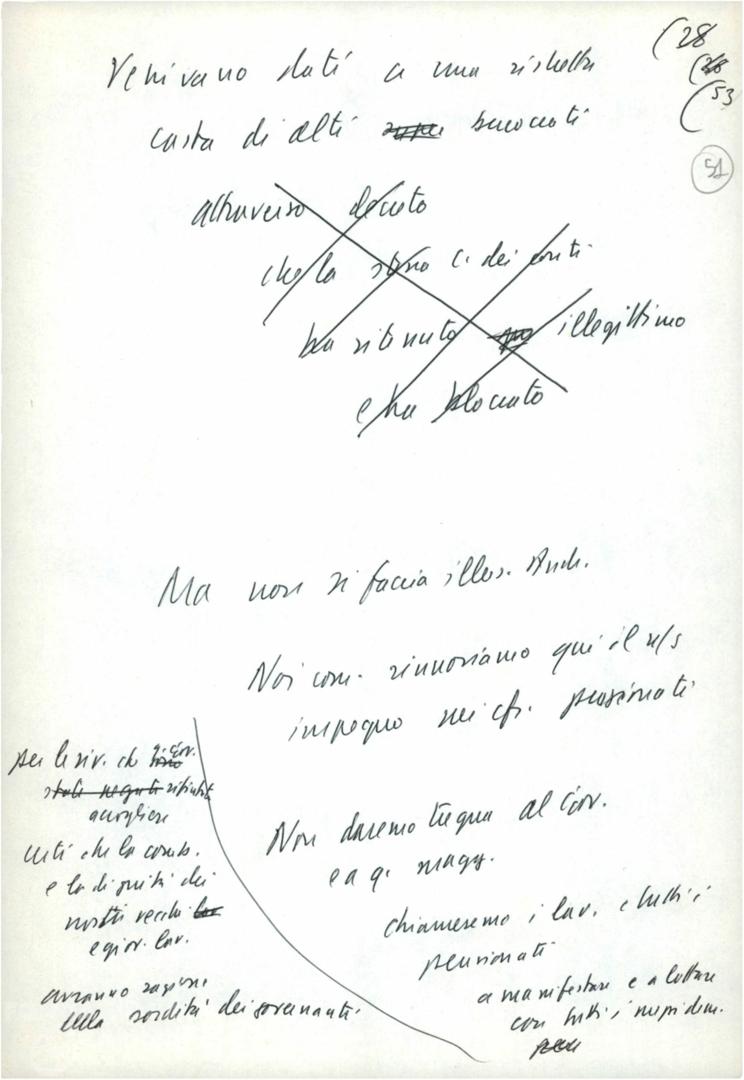 (28
(28
(53
51
Venivano dati a una ristretta
casta di alti burocrati
attraverso decreto
che la stessa C. dei conti
ha ritenuto illegittimo
e ha bloccato
Ma non si faccia illus. Andr.
Noi com. rinnoviamo qui il n/s
impegno nei cfr. pensionati
Non daremo tregua al Gov.
e a q. magg.
chiameremo i lav. e tutti i
pensionati
a manifestare e a lottare
con tutti i mezzi dem.
per le riv. che il Gov.
stati negati rifiuta
accogliere
certi che la comb.
e la dignità dei
nostri vecchi
e giov. lav.
avranno ragione
della sordità dei governanti.